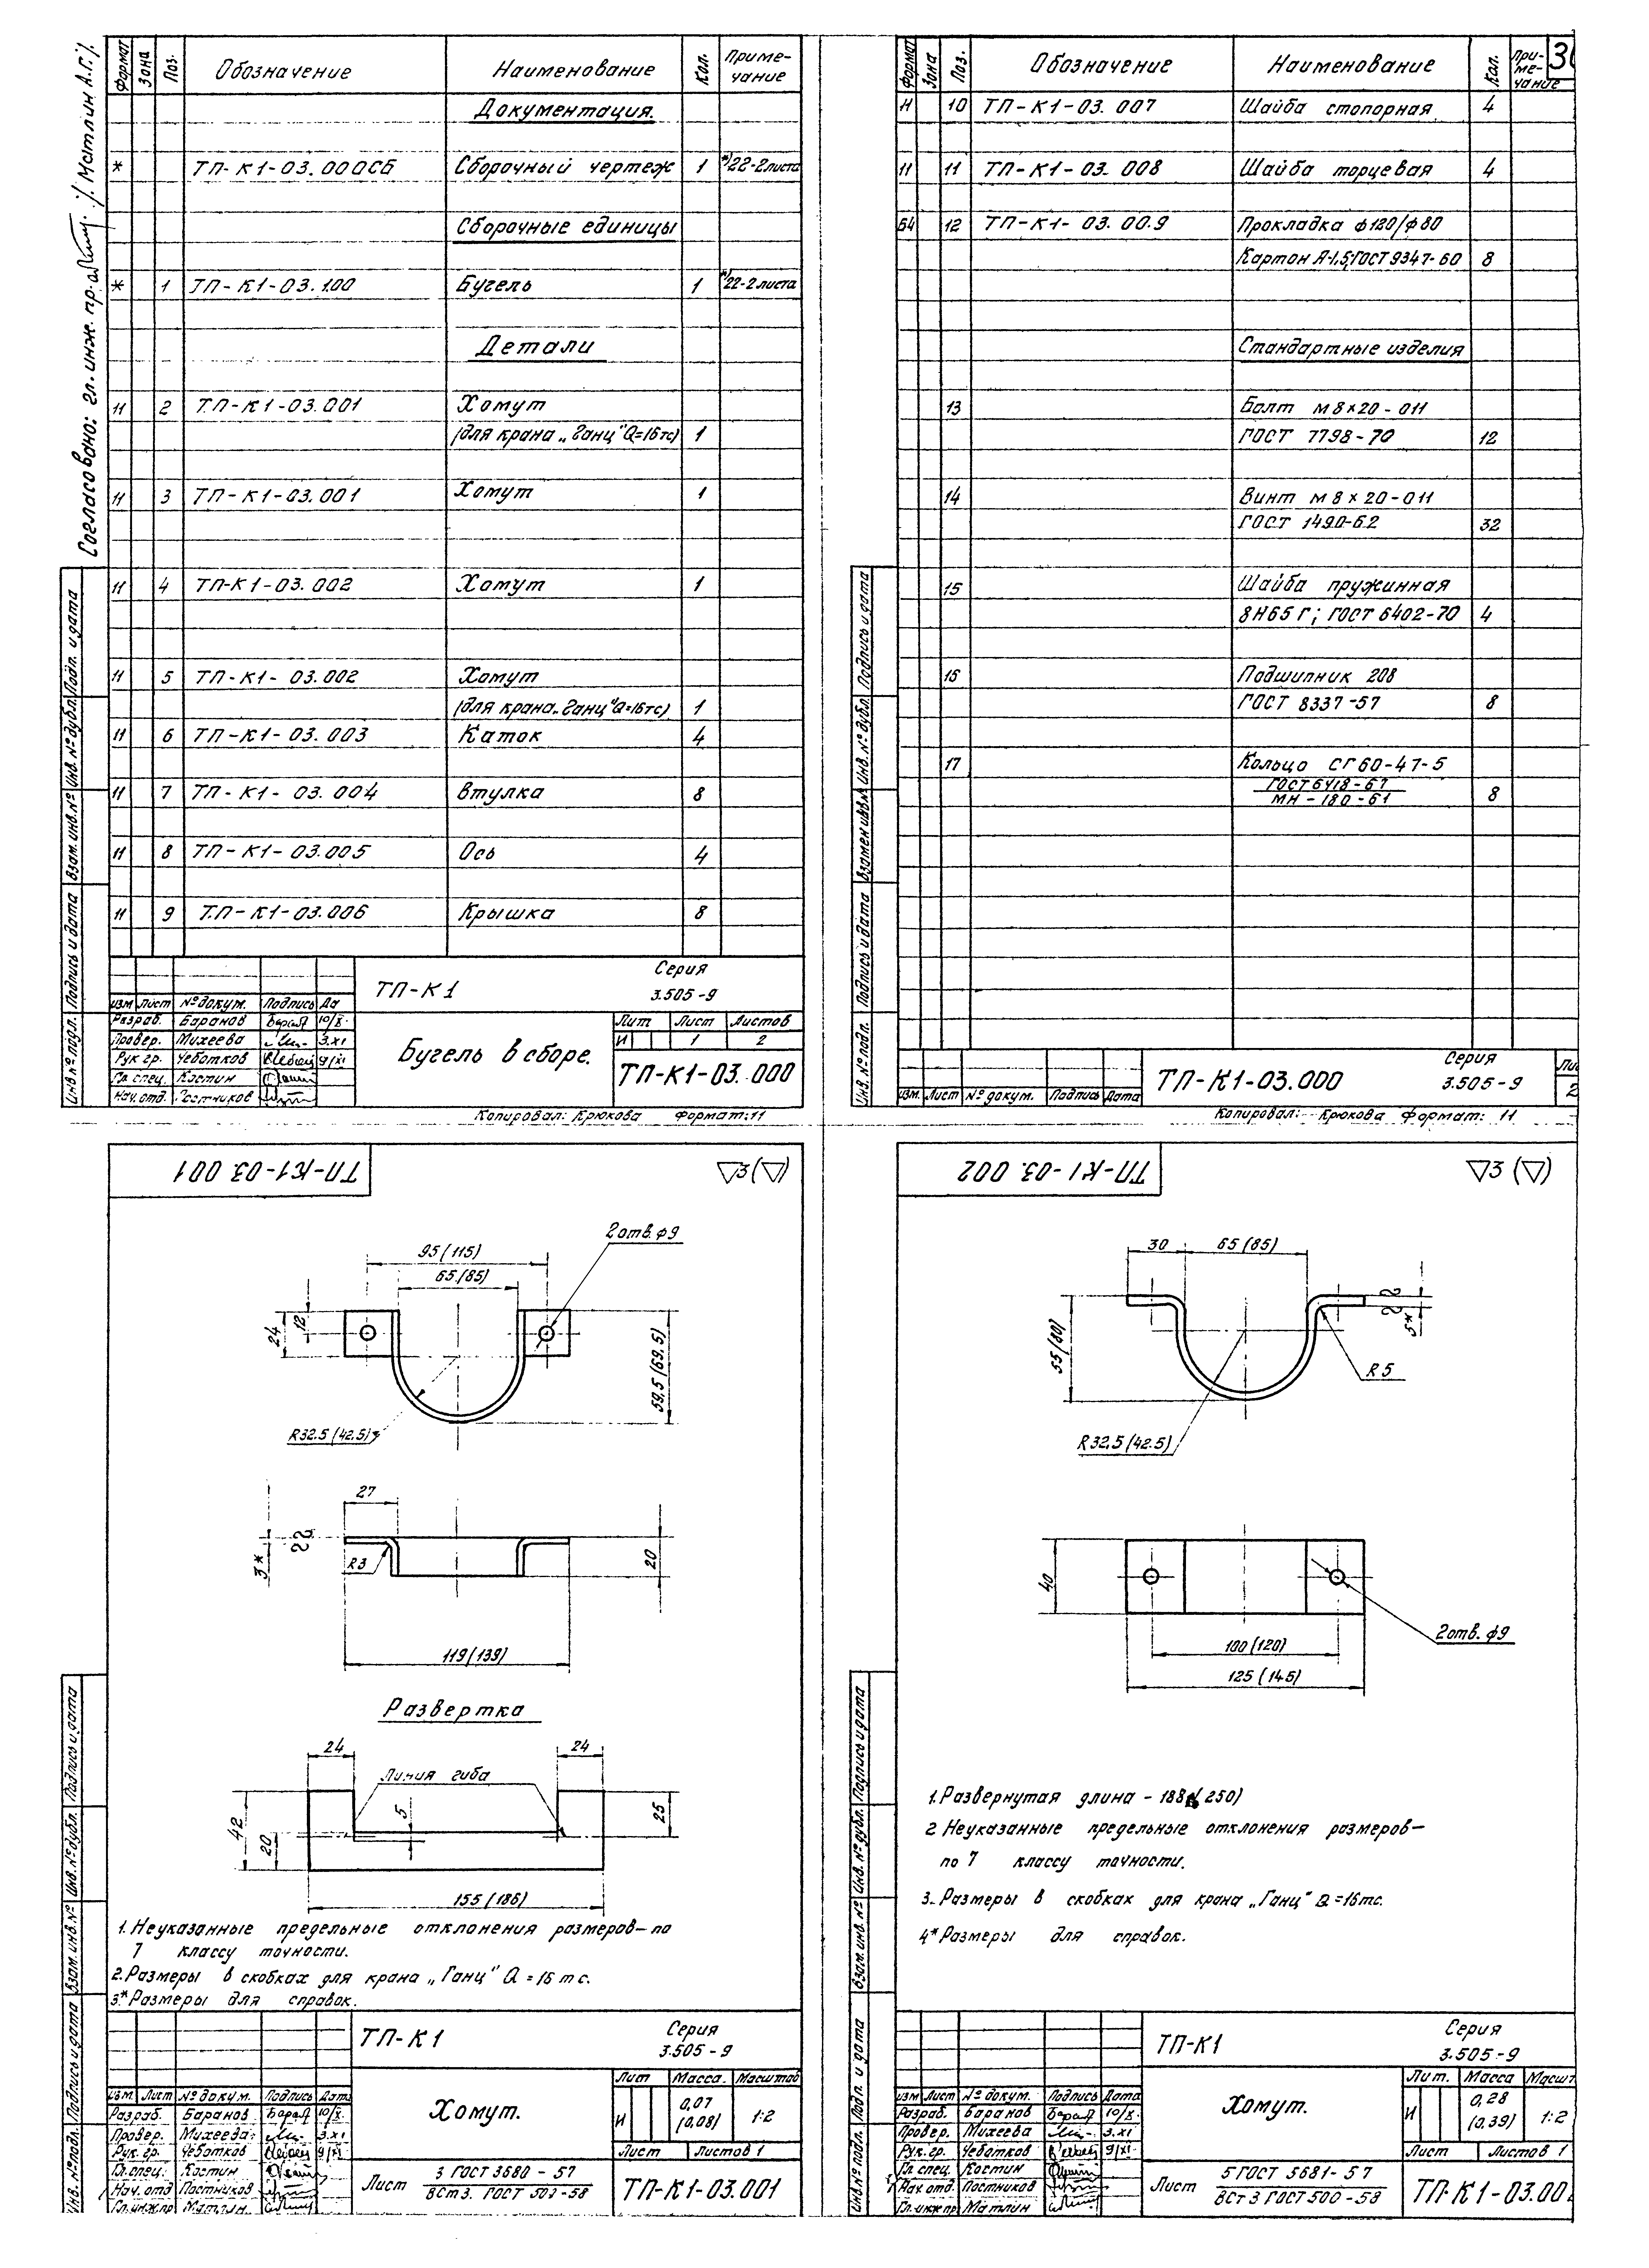 Согласовано: гл. инж. пр. /Матлин А.Г./
Формат Зона Поз. Обозначение Наименование Кол. Примечание
Документация.
* ТП-К1-03.000СБ Сборочный чертеж 1 *)22-2листа
Сборочные единицы
* 1 ТП-К1-03.100 Бугель 1 *)22-2листа
Детали
11 2 ТП-К1-03.001 Хомут
(для крана „Ганц" Q=16тс) 1
11 3 ТП-К1-03.001 Хомут 1
11 4 ТП-К1-03.002 Хомут 1
11 5 ТП-К1-03.002 Хомут
(для крана „Ганц" Q=16тс) 1
11 6 ТП-К1-03.003 Каток 4
11 7 ТП-К1-03.004 Втулка 8
11 8 ТП-К1-03.005 Ось 4
11 9 ТП-К1-03.006 Крышка 8
ТП-К1 Серия
3.505-9
Изм Лист № докум. Подпись Да
Разраб. Баранов 10/X.
Провер. Михеева 3.XI
Рук гр. Чеботков 9/XI
Гл. спец. Костин
Нач. отд. Постников
Бугель в сборе.
Лит Лист Листов
И 1 2
ТП-К1-03.000
Копировал: Крюкова Формат: 11
Инв № подл. Подпись и дата Взам. инв. № Инв. № дубл. Подп. и дата
Формат Зона Поз. Обозначение Наименование Кол. Примечание
11 10 ТП-К1-03.007 Шайба стопорная 4
11 11 ТП-К1-03.008 Шайба торцевая 4
Б4 12 ТП-К1-03.009 Прокладка ф120/ф80
Картон А-1,5; ГОСТ 9347-60 8
Стандартные изделия
13 Болт М8×20-011
ГОСТ 7798-70 12
14 Винт М8×20-011
ГОСТ 1490-62 32
15 Шайба пружинная
8Н65Г; ГОСТ 6402-70 4
16 Подшипник 208
ГОСТ 8337-57 8
17 Кольцо СГ60-47-5
ГОСТ 6418-67
МН-180-61 8
Изм. Лист № докум. Подпись Дата
ТП-К1-03.000
Серия
3.505-9
2
Копировал: Крюкова Формат: 11
Инв. № подл. Подпись и дата Взамен инв. № Инв. № дубл. Подпись и дата
ТП-К1-03.001
▽3(▽)
2 отв. ф9
95(115)
65(85)
24
12
59,5(69,5)
R32,5(42,5)
27
3*
R3
20
119(139)
Развертка
24 24
Линия гиба
42
20
5
25
155(186)
1. Неуказанные предельные отклонения размеров-по
7 классу точности.
2. Размеры в скобках для крана „Ганц" Q=16тс.
3.* Размеры для справок.
ТП-К1 Серия
3.505-9
Изм. Лист № докум. Подпись Дата
Разраб. Баранов 10/X.
Провер. Михеева 3.XI
Рук. гр. Чеботков 9/XI
Гл. спец. Костин
Нач. отд Постников
Гл. инж. пр Матлин
Хомут.
Лит Масса. Масштаб
И 0,07
(0,08) 1:2
Лист Листов 1
Лист 3 ГОСТ 3680-57
ВСт3. ГОСТ 501-58
ТП-К1-03.001
Инв. № подл. Подпись и дата Взам. инв. № Инв. № дубл. Подпись и дата
ТП-К1-03.002
▽3(▽)
30 65(85)
55(80)
5*
R5
R32,5(42.5)
40
100(120)
125(145)
2 отв. ф9
1. Развернутая длина - 188(250)
2 Неуказанные предельные отклонения размеров-
по 7 классу точности.
3. Размеры в скобках для крана „Ганц" Q=16тс.
4* Размеры для справок.
ТП-К1 Серия
3.505-9
Изм Лист № докум. Подпись Дата
Разраб. Баранов 10/X.
Провер. Михеева 3.XI
Рук. гр. Чеботков 9/XI.
Гл спец. Костин
Нач. отд. Постников
Гл. инж пр Матлин
Хомут.
Лит. Масса Масшт
И 0,28
(0,39) 1:2
Лист Листов 1
Лист 5 ГОСТ 5681-57
ВСт3 ГОСТ 500-58
ТП-К1-03.00
Инв № подл. Подп. и дата Взам. инв. № Инв. № дубл. Подпись и дата